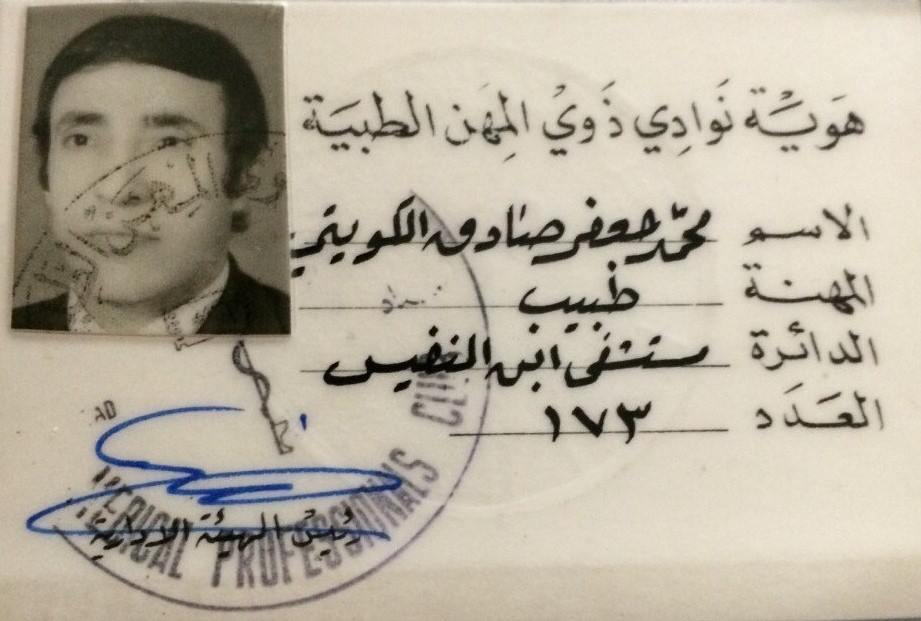 هَوِيَّة نَوادِي ذَوِيْ المِهَن الطبيَة
الاسم محمّد جعفر صادق الكويتي
المهنة طبيب
الدائرة مستشفى ابن النفيس
العَدَد ١٧٣
رئيس الهيئة الادارية
MEDICAL PROFESSIONALS